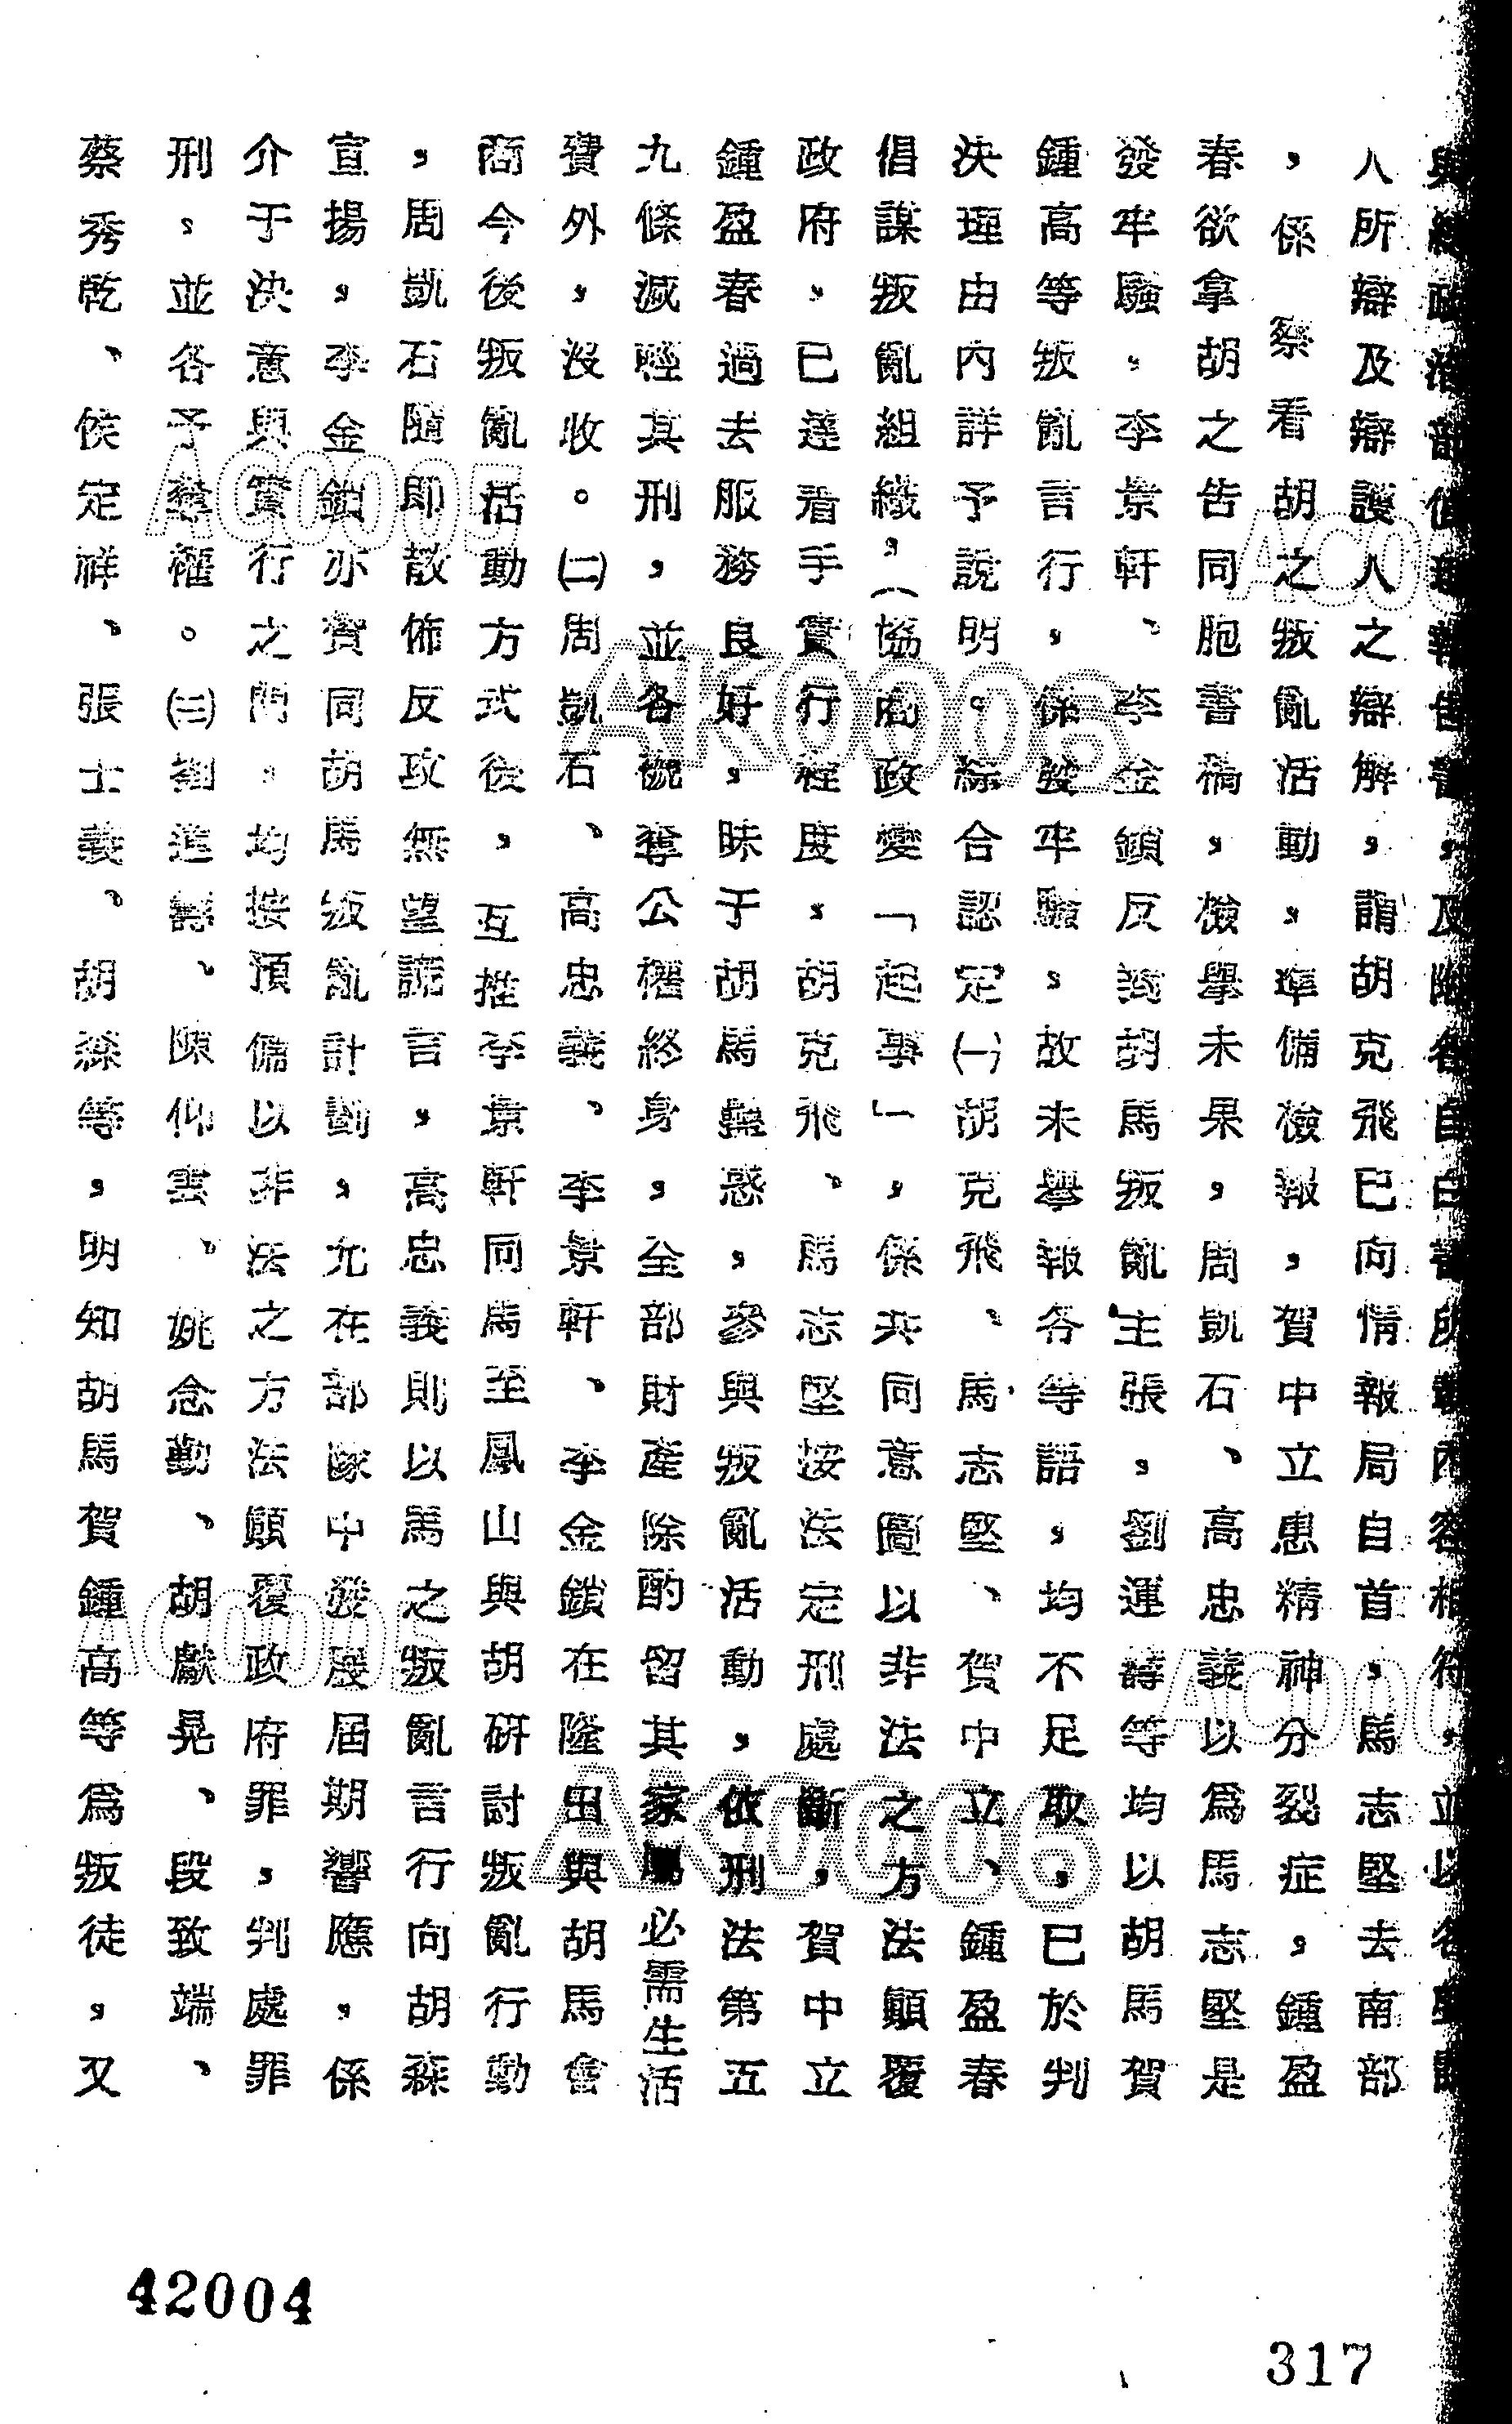 與經政治部偵理報告書，及附各自白書所載內容相符，並以各
人所辯及辯護人之辯解，謂胡克飛已向情報局自首，馬志堅去南部
，係察看胡之叛亂活動，準備檢報，賀中立患精神分裂症，鍾盈
春欲拿胡之告同胞書稿，檢舉未果，周凱石、高忠義以為馬志堅是
發牢騷，李景軒、李金鎖反對胡馬叛亂主張，劉運籌等均以胡馬賀
鍾高等叛亂言行，係發牢騷，故未舉報各等語，均不足取，已於判
決理由內詳予說明。綜合認定㈠胡克飛、馬志堅、賀中立、鍾盈春
倡謀叛亂組織，（協商政變，「起事」，係共同意圖以非法之方法顛覆
政府，已達着手實行程度，胡克飛、馬志堅按法定刑處斷，賀中立
鍾盈春過去服務良好，昧于胡馬蠱惑，參與叛亂活動，依刑法第五
九條減輕其刑，並各褫奪公權終身，全部財產除酌留其家屬必需生活
費外，沒收。㈡周凱石、高忠義、李景軒、李金鎖在隆田與胡馬會
商今後叛亂活動方式後，互推李景軒同馬至鳳山與胡研討叛亂行動
，周凱石隨即散佈反攻無望謊言，高忠義則以馬之叛亂言行向胡森
宣揚，李金鎖亦贊同胡馬叛亂計劃，允在部隊中發展屆期響應，係
介于決意與實行之間，均按預備以非法之方法顛覆政府罪，判處罪
刑，並各予褫奪權。㈢劉運籌、陳仰雲、姚念勤、胡獻晃、段致端、
蔡秀乾、侯定祥、張士義、胡森等，明知胡馬賀鍾高等為叛徒，又
42004
317